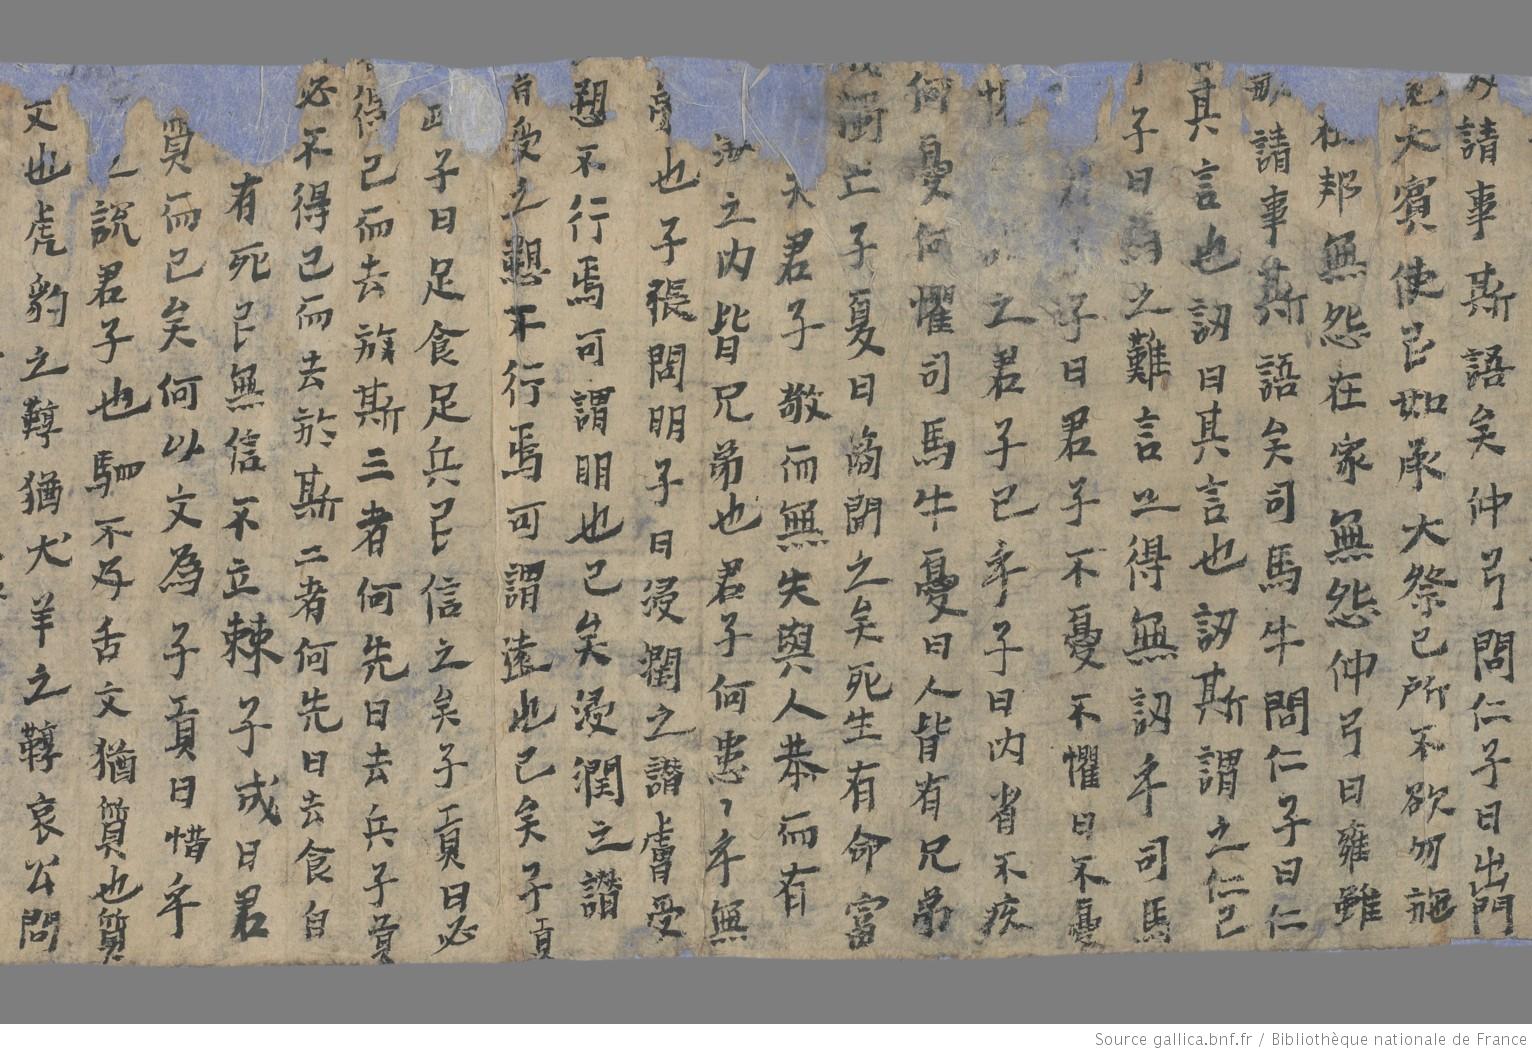 請事斯語矣仲弓問仁子曰出門
大賓使民如承大祭己所不欲勿施
在邦無怨在家無怨仲弓曰雍雖
敏請事斯語矣司馬牛問仁子曰仁
其言也訒曰其言也訒斯謂之仁已
子曰為之難言之得無訒乎司馬
子曰君子不憂不懼曰不憂
之君子已乎子曰內省不疚
何憂何懼司馬牛憂曰人皆有兄弟
我獨亡子夏曰商聞之矣死生有命富
天君子敬而無失與人恭而有
海之內皆兄弟也君子何患乎無
也子張問明子曰浸潤之譖膚受
愬不行焉可謂明也已矣浸潤之譖
膚受之愬不行焉可謂遠也已矣子貢
政子曰足食足兵民信之矣子貢曰必
得已而去於斯三者何先曰去兵子貢
必不得已而去於斯二者何先曰去食自
有死民無信不立棘子成曰君
質而已矣何以文為子貢曰惜乎
之說君子也駟不及舌文猶質也質
文也虎豹之鞟猶犬羊之鞟哀公問
Source gallica.bnf.fr / Bibliothèque nationale de France